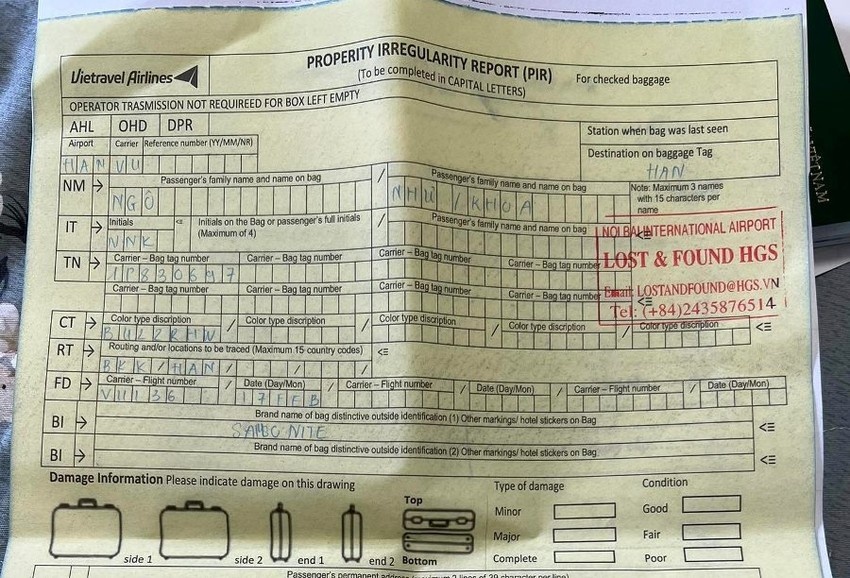 Vietravel Airlines
PROPERITY IRREGULARITY REPORT (PIR)
(To be completed in CAPITAL LETTERS)
For checked baggage
OPERATOR TRASMISSION NOT REQUIREED FOR BOX LEFT EMPTY
AHL OHD DPR
Station when bag was last seen
Airport Carrier Reference number (YY/MM/NR)
Destination on baggage Tag
HAN VU
HAN
NM → Passenger's family name and name on bag / Passenger's family name and name on bag
Note: Maximum 3 names with 15 characters per name
NGÔ NHƯ / KHOA
IT → Initials <= Initials on the Bag or passenger's full initials (Maximum of 4) / Passenger's family name and name on bag <=
NNK
NOI BAI INTERNATIONAL AIRPORT
LOST & FOUND HGS
Email: LOSTANDFOUND@HGS.VN
Tel: (+84)2435876514
TN → Carrier – Bag tag number Carrier – Bag tag number Carrier – Bag tag number Carrier – Bag tag number
Carrier – Bag tag number Carrier – Bag tag number Carrier – Bag tag number Carrier – Bag tag number <=
CT → Color type discription / Color type discription / Color type discription / Color type discription / Color type discription <=
RT → Routing and/or locations to be traced (Maximum 15 country codes) <=
BKK / HAN / / /
FD → Carrier – Flight number / Date (Day/Mon) / Carrier – Flight number / Date (Day/Mon) / Carrier – Flight number / Date (Day/Mon)
VU136 17FEB
BI → Brand name of bag distinctive outside identification (1) Other markings/ hotel stickers on Bag <=
BI → Brand name of bag distinctive outside identification (2) Other markings/ hotel stickers on Bag <=
Damage Information Please indicate damage on this drawing
Type of damage Condition
Top
Minor Good
Major Fair
Complete Poor
side 1 side 2 end 1 end 2 Bottom